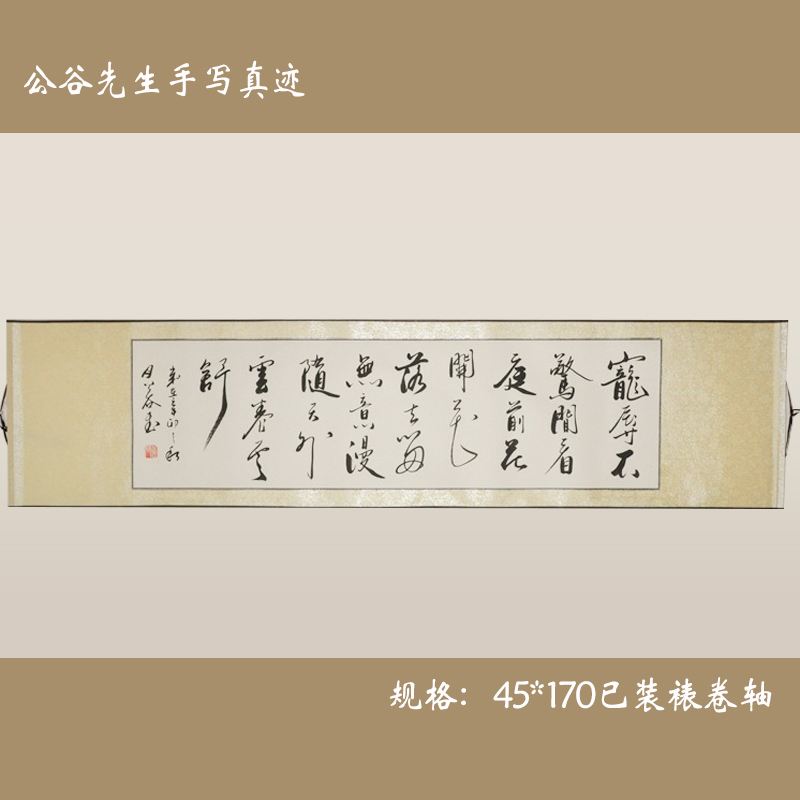 公谷先生手写真迹
寵辱不
驚閒看
庭前花
開花
落去留
無意漫
隨天外
雲卷雲
舒
歲在辛卯之秋
公谷書
规格：45*170已装裱卷轴